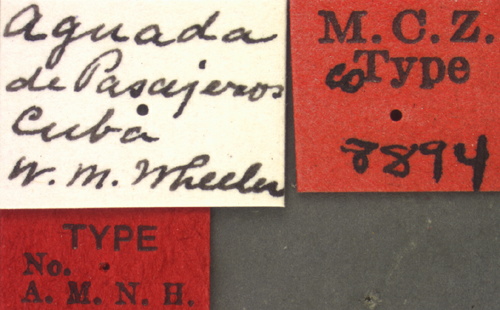 Aguada
de Pasajeros
Cuba
W. M. Wheeler
M. C. Z.
CoType
8894
TYPE
No.
A. M. N. H.